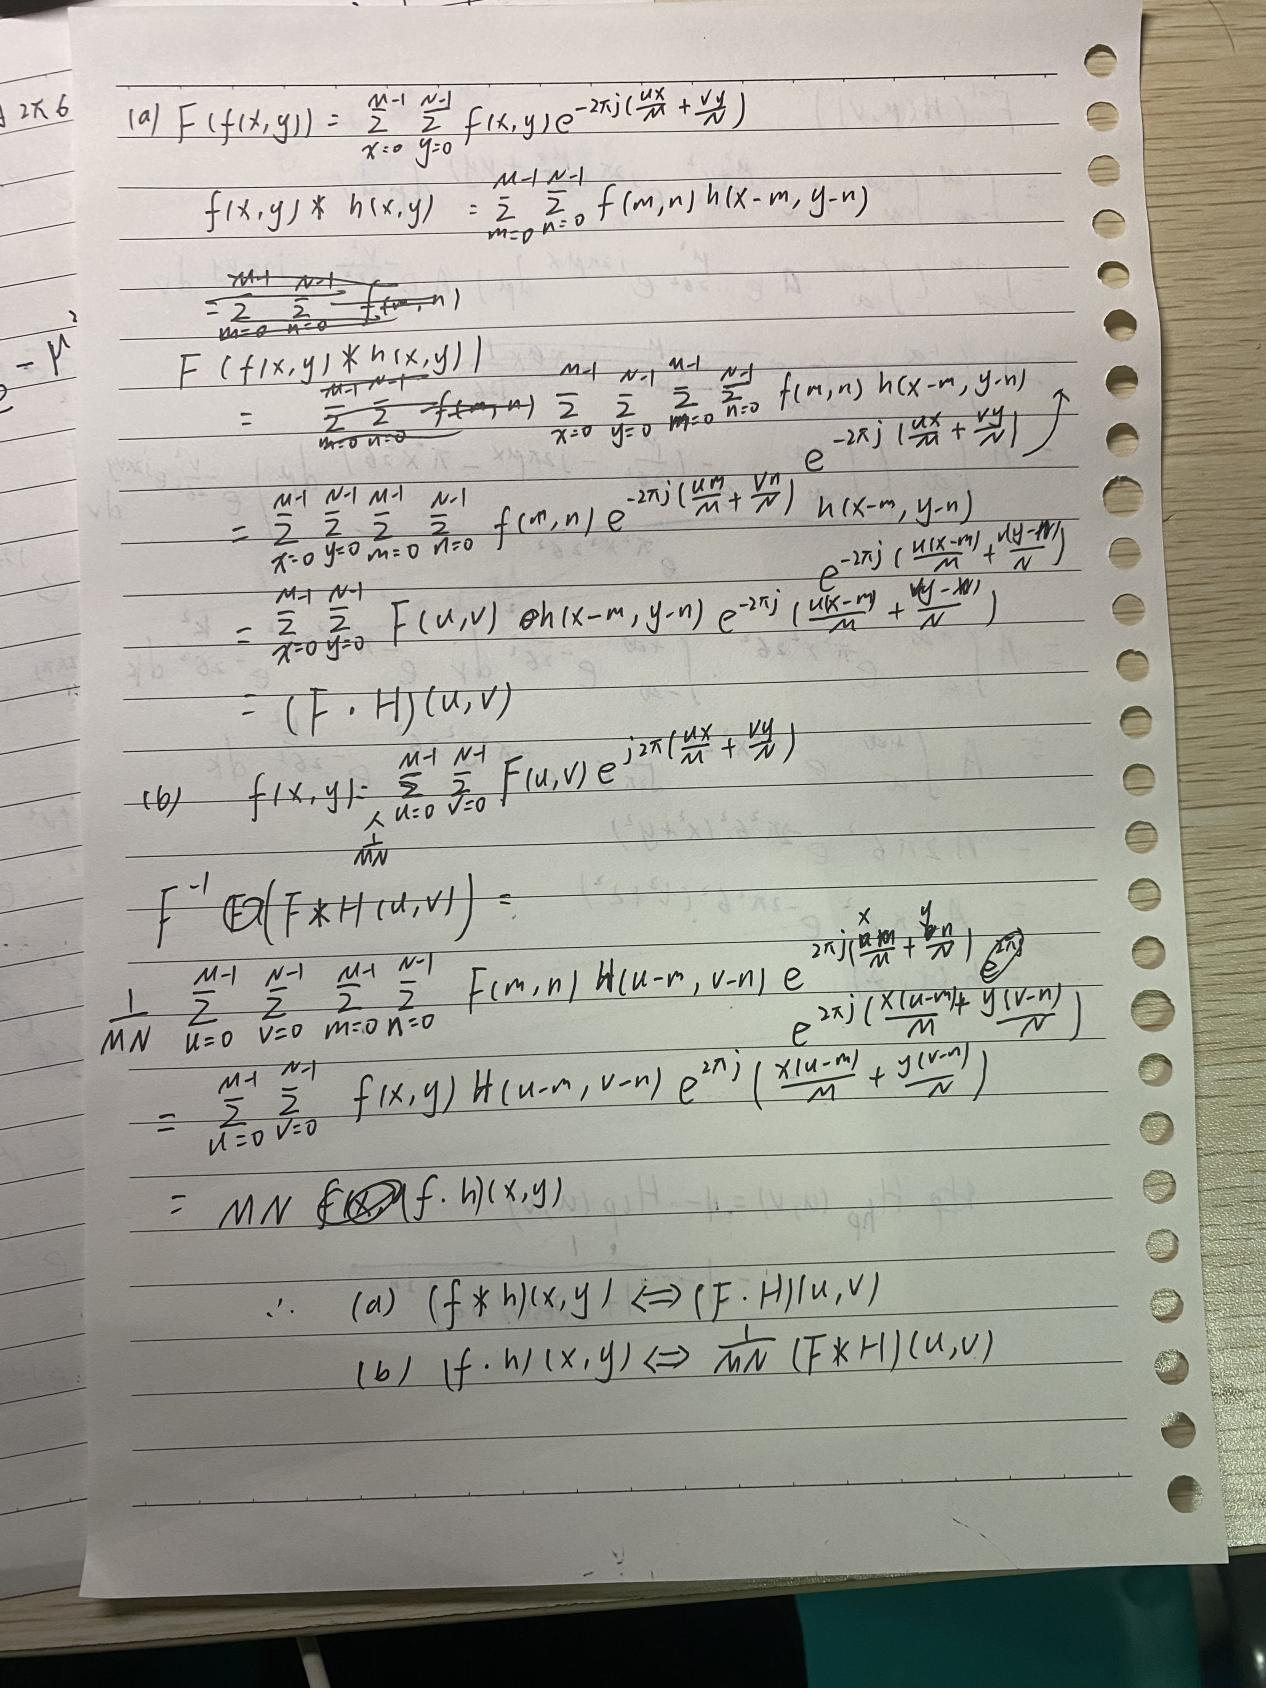 2π6
(a) F(f(x,y)) = Σ_{x=0}^{M-1} Σ_{y=0}^{N-1} f(x,y) e^{-2πj(ux/M + vy/N)}
f(x,y) * h(x,y) = Σ_{m=0}^{M-1} Σ_{n=0}^{N-1} f(m,n) h(x-m, y-n)
= Σ_{m=0}^{M-1} Σ_{n=0}^{N-1} f(m,n)
- μ²
F(f(x,y) * h(x,y))
= Σ_{m=0}^{M-1} Σ_{n=0}^{N-1} f(m,n) Σ_{x=0}^{M-1} Σ_{y=0}^{N-1} Σ_{m=0}^{M-1} Σ_{n=0}^{N-1} f(m,n) h(x-m, y-n)
e^{-2πj(ux/M + vy/N)}
= Σ_{x=0}^{M-1} Σ_{y=0}^{N-1} Σ_{m=0}^{M-1} Σ_{n=0}^{N-1} f(m,n) e^{-2πj(um/M + vn/N)} h(x-m, y-n)
e^{-2πj(u(x-m)/M + v(y-n)/N)}
= Σ_{x=0}^{M-1} Σ_{y=0}^{N-1} F(u,v) h(x-m, y-n) e^{-2πj(u(x-m)/M + v(y-n)/N)}
= (F · H)(u,v)
(b) f(x,y) = 1/MN Σ_{u=0}^{M-1} Σ_{v=0}^{N-1} F(u,v) e^{j2π(ux/M + vy/N)}
F^{-1}(F*H(u,v)) =
1/MN Σ_{u=0}^{M-1} Σ_{v=0}^{N-1} Σ_{m=0}^{M-1} Σ_{n=0}^{N-1} F(m,n) H(u-m, v-n) e^{2πj(xm/M + yn/N)} e^{2πj
e^{2πj(x(u-m)/M + y(v-n)/N)}
= Σ_{u=0}^{M-1} Σ_{v=0}^{N-1} f(x,y) H(u-m, v-n) e^{2πj(x(u-m)/M + y(v-n)/N)}
= MN (f · h)(x,y)
∴ (a) (f * h)(x,y) ⇔ (F · H)(u,v)
(b) (f · h)(x,y) ⇔ 1/MN (F * H)(u,v)